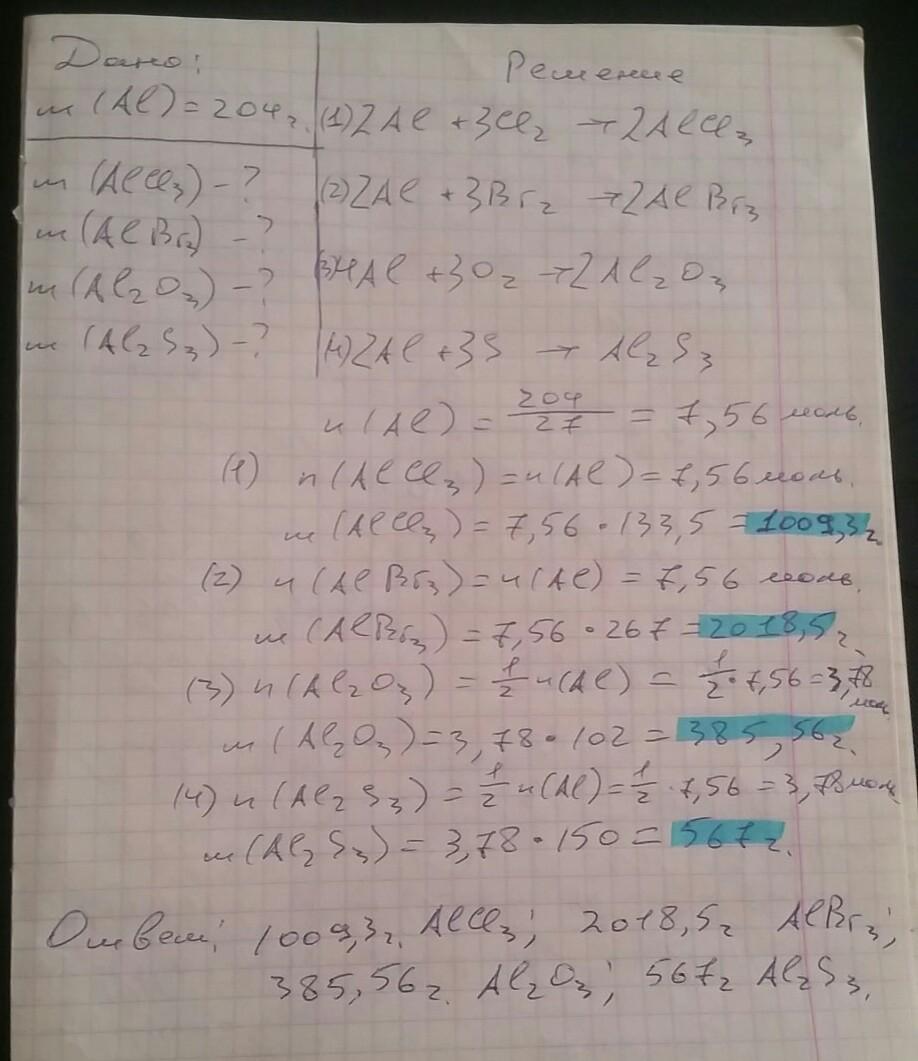 Дано:
m (Al) = 204г.
m (AlCl₃) - ?
m (AlBr₃) - ?
m (Al₂O₃) - ?
m (Al₂S₃) - ?
Решение
(1) 2Al + 3Cl₂ → 2AlCl₃
(2) 2Al + 3Br₂ → 2AlBr₃
(3) 4Al + 3O₂ → 2Al₂O₃
(4) 2Al + 3S → Al₂S₃
n (Al) = 204/27 = 7,56 моль.
(1) n (AlCl₃) = n (Al) = 7,56 моль.
m (AlCl₃) = 7,56 · 133,5 = 1009,3г.
(2) n (AlBr₃) = n (Al) = 7,56 моль.
m (AlBr₃) = 7,56 · 267 = 2018,5г.
(3) n (Al₂O₃) = 1/2 n (Al) = 1/2 · 7,56 = 3,78 моль
m (Al₂O₃) = 3,78 · 102 = 385,56г.
(4) n (Al₂S₃) = 1/2 n (Al) = 1/2 · 7,56 = 3,78 моль
m (Al₂S₃) = 3,78 · 150 = 567г.
Ответ: 1009,3г. AlCl₃; 2018,5г AlBr₃;
385,56г. Al₂O₃; 567г Al₂S₃.